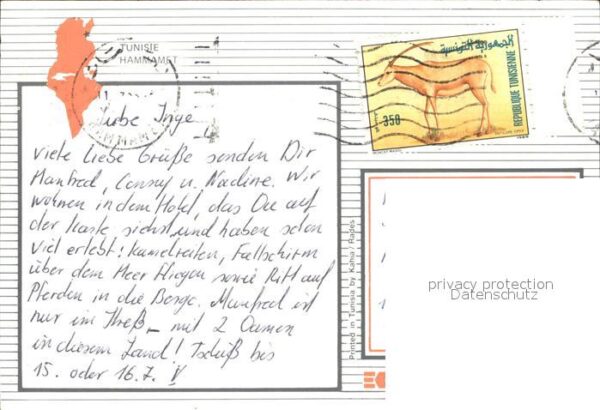 TUNISIE
HAMMAMET
الجمهورية التونسية
REPUBLIQUE TUNISIENNE
350
Liebe Inge
viele liebe Grüße senden Dir
Manfred, Conny u. Nadine. Wir
wohnen in dem Hotel, das Du auf
der Karte siehst und haben schon
viel erlebt! Kamelreiten, Fallschirm
über dem Meer fliegen sowie Ritt auf
Pferden in die Berge. Manfred ist
nur im Streß – mit 2 Damen
in diesem Land! Tschüß bis
15. oder 16.7.
Printed in Tunisia by Kahia / Rades
privacy protection
Datenschutz